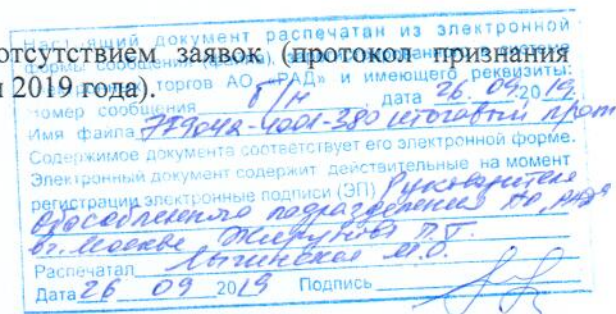 отсутствием заявок (протокол признания
2019 года).
Настоящий документ распечатан из электронной
формы сообщения (файла),
торгов АО «РАД» и имеющего реквизиты:
номер сообщения б/н , дата 26. 09. 2019
Имя файла 779042-1001-380 итоговый прот
Содержимое документа соответствует его электронной форме.
Электронный документ содержит действительные на момент
регистрации электронные подписи (ЭП) Руководителя
обособленного подразделения АО "РАД"
в г. Москве
Распечатал М.О.
Дата 26 09 2019 Подпись